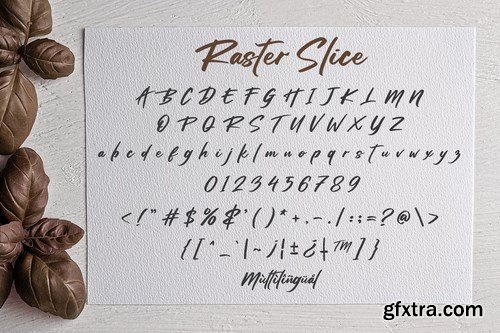 Raster Slice
A B C D E F G H I J K L M N
O P Q R S T U V W X Y Z
a b c d e f g h i j k l m n o p q r s t u v w x y z
0 1 2 3 4 5 6 7 8 9
< ! " # $ % & ' ( ) * + , - . / : ; = ? @ \ >
{ [ ^ _ ` | ~ ¡ ¦ ± ¿ ‡ ™ ] }
Múltilingüál
gfxtra.com